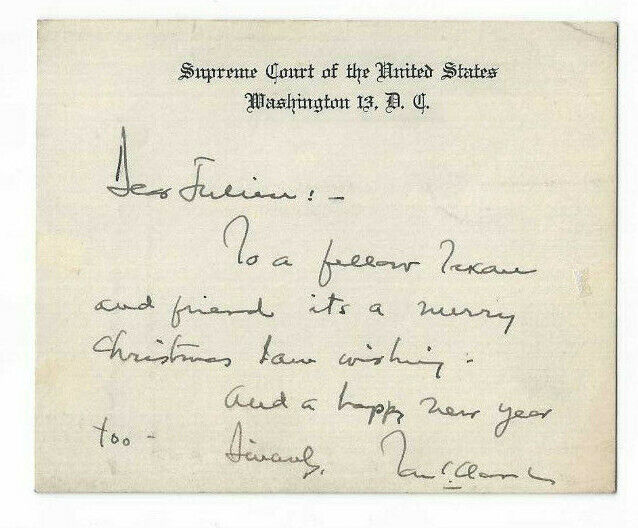 Supreme Court of the United States
Washington 13, D. C.
Dear Julien: -
To a fellow Texan
and friend its a merry
Christmas I am wishing -
And a happy new year
too -
Sincerely, Tom C Clark